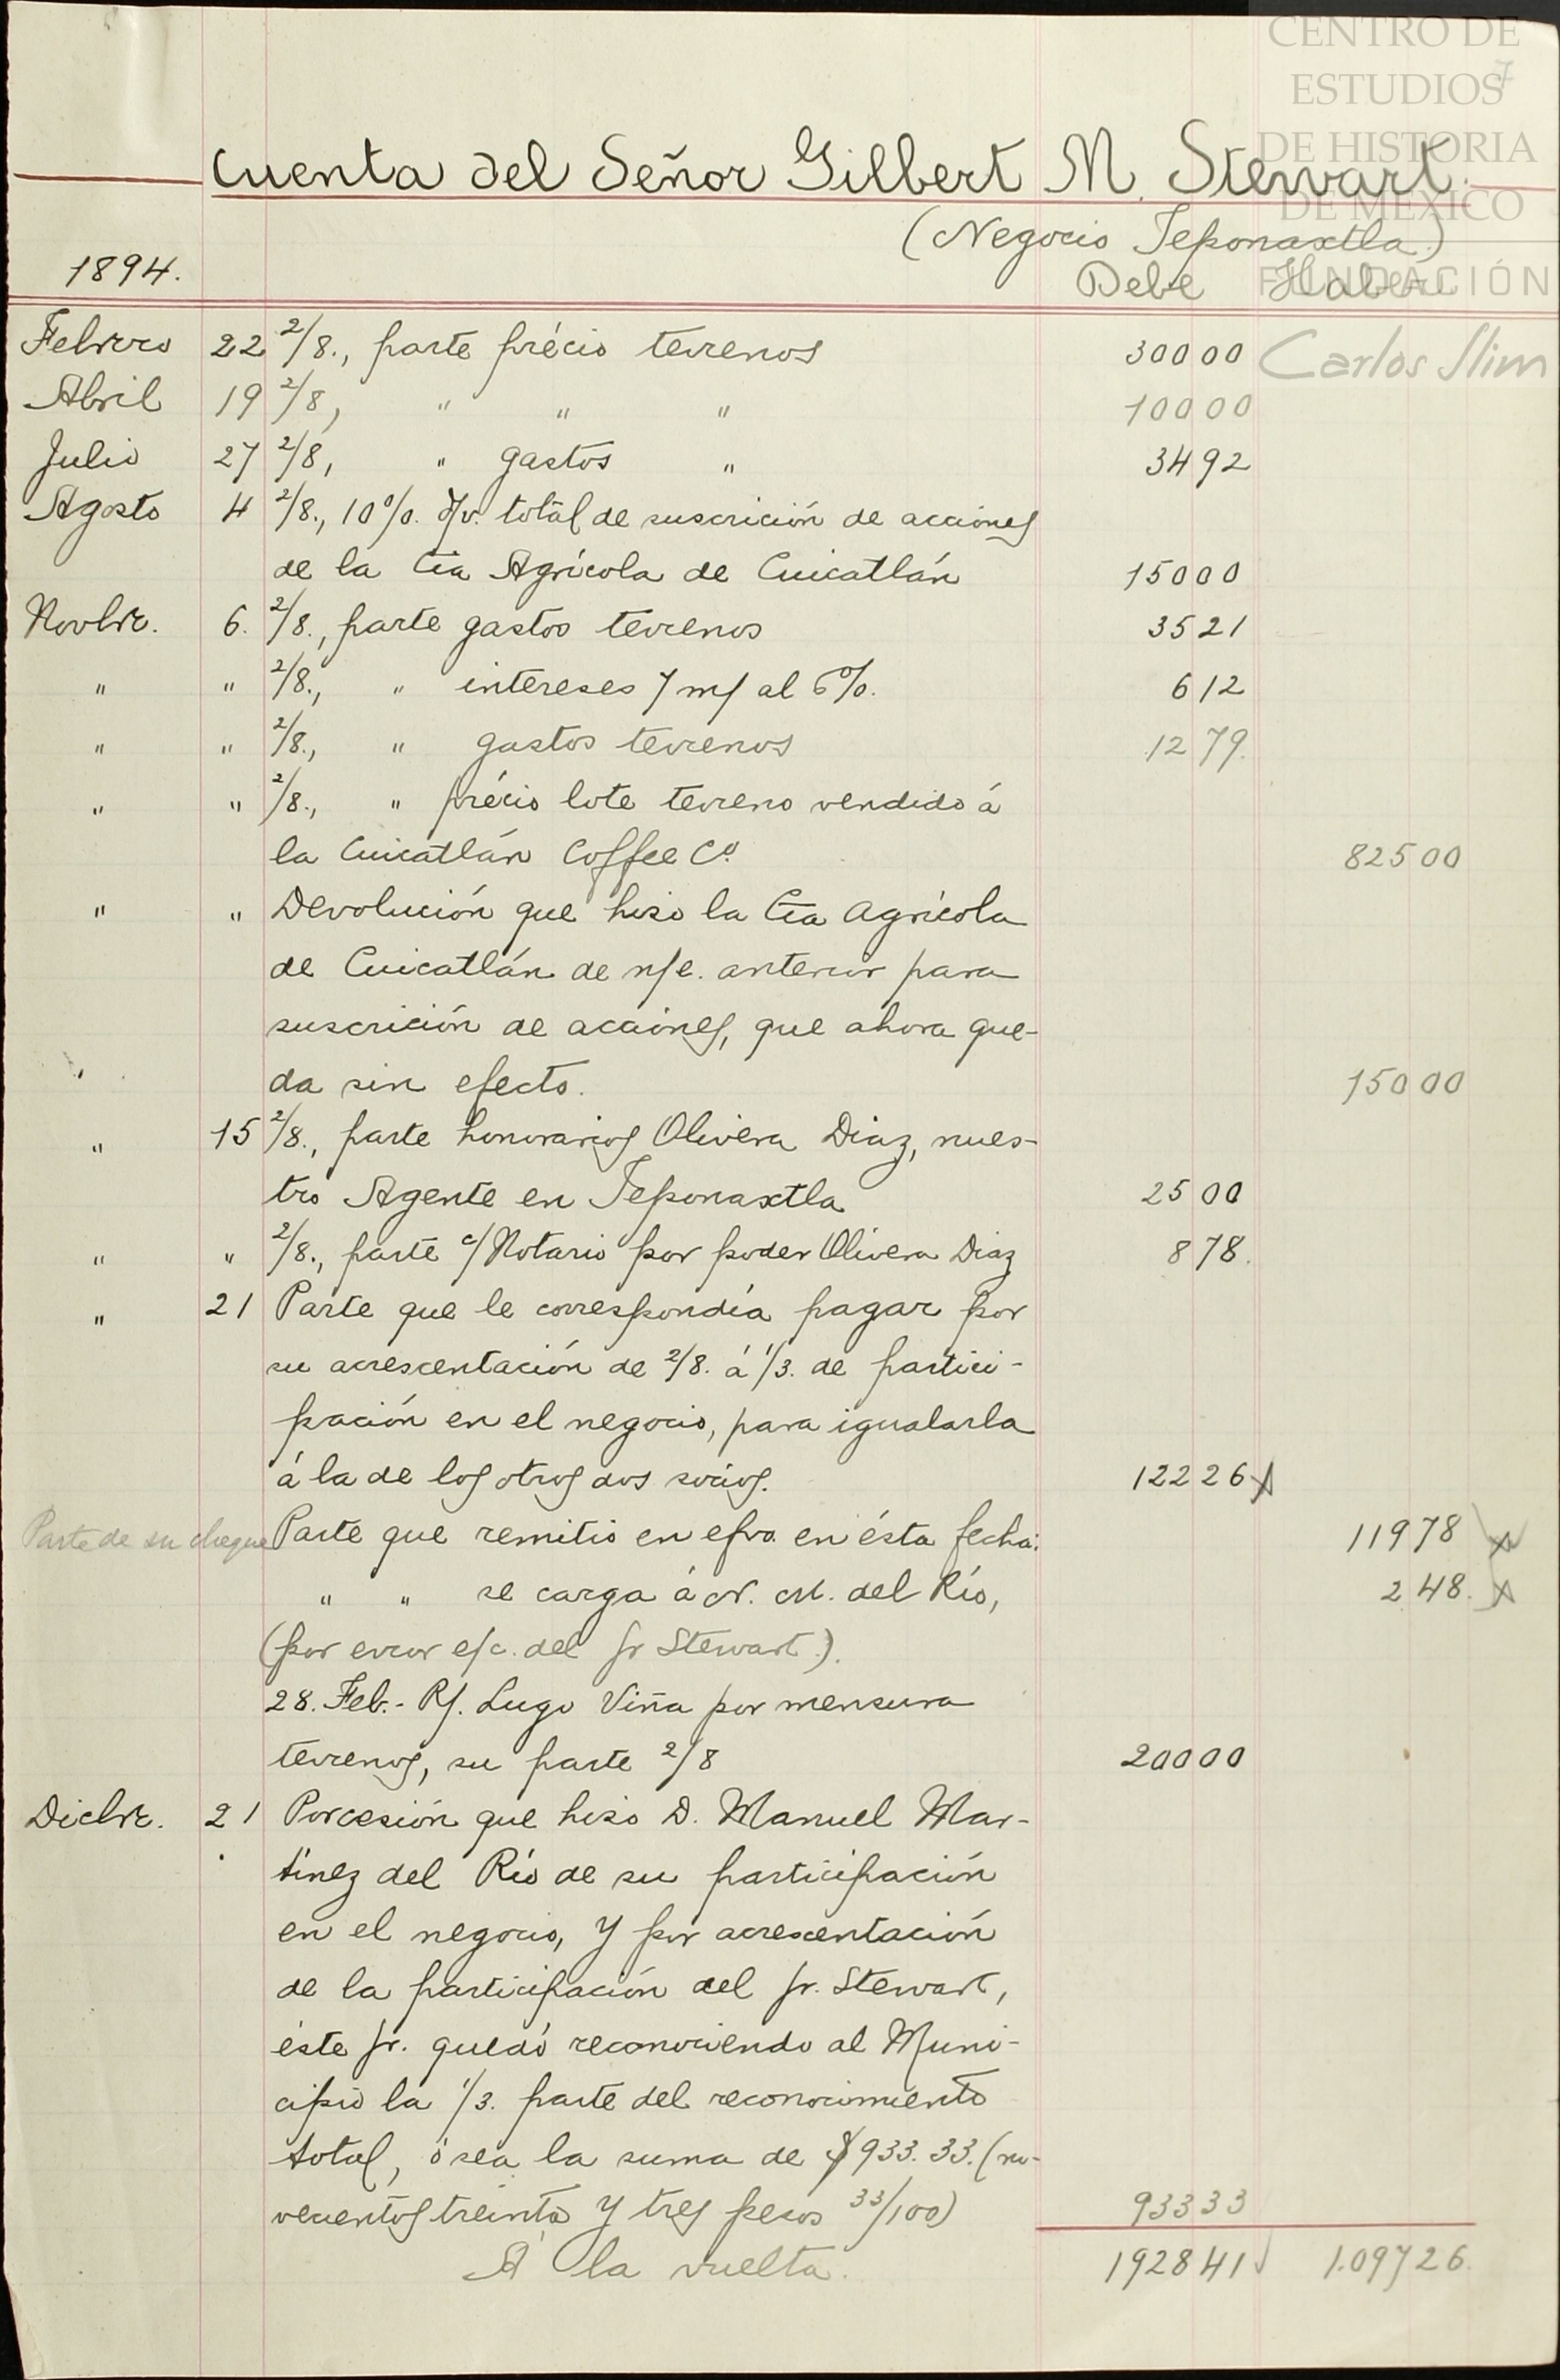 CENTRO DE
ESTUDIOS
DE HISTORIA
DE MÉXICO
FUNDACIÓN
Carlos Slim
7
Cuenta del Señor Gilbert M. Stewart.
(Negocio Teponaxtla)
1894. Debe Haber
Febrero 22 2/8., parte précio terrenos 300 00
Abril 19 2/8, " " " 100 00
Julio 27 2/8, " gastos " 34 92
Agosto 4 2/8., 10%. s/v. total de suscrición de acciones
de la Cia Agrícola de Cuicatlán 150 00
Novbre. 6. 2/8., parte gastos terrenos 35 21
" " 2/8., " intereses 7 m/ al 6%. 6 12
" " 2/8., " gastos terrenos 12 79.
" " 2/8., " précio lote terreno vendido á
la Cuicatlán Coffee Co. 825 00
" " Devolución que hizo la Cia Agrícola
de Cuicatlán de n/e. anterior para
suscrición de acciones, que ahora que-
da sin efecto. 150 00
" 15 2/8., parte honorarios Olivera Diaz, nues-
tro Agente en Teponaxtla 25 00
" " 2/8., parte c/ Notario por poder Olivera Diaz 8 78.
" 21 Parte que le correspondía pagar por
su acrescentación de 2/8. á 1/3. de partici-
pación en el negocio, para igualarla
á la de los otros dos socios. 122 26 x
Parte de su cheque Parte que remitió en efvo. en ésta fecha: 119 78 x
" " se carga á N. M. del Río, 2 48. x
(por error e/c. del Sr Stewart).
28. Feb.- R/. Lugo Viña por mensura
terrenos, su parte 2/8 200 00
Dicbre. 21 Por cesión que hizo D. Manuel Mar-
tínez del Río de su participación
en el negocio, y por acrescentación
de la participación del Sr. Stewart,
éste Sr. quedó reconociendo al Muni-
cipio la 1/3. parte del reconocimiento
total, ó sea la suma de $933.33. (no-
vecientos treinta y tres pesos 33/100) 933 33
Á la vuelta. 1928 41 1.097 26.